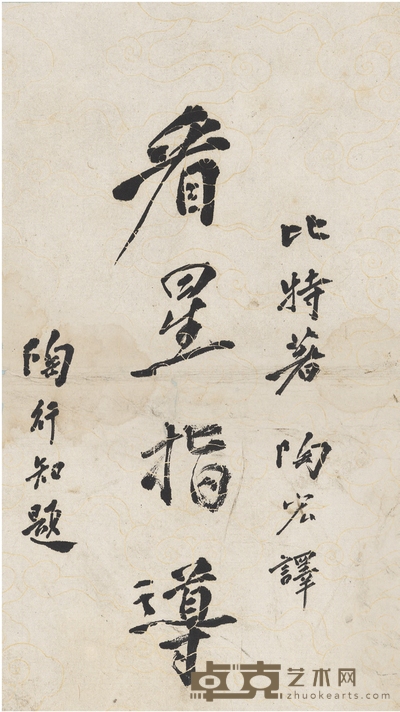 比特著 陶宏譯
看星指導
陶行知題
卓克艺术网
zhuokearts.com